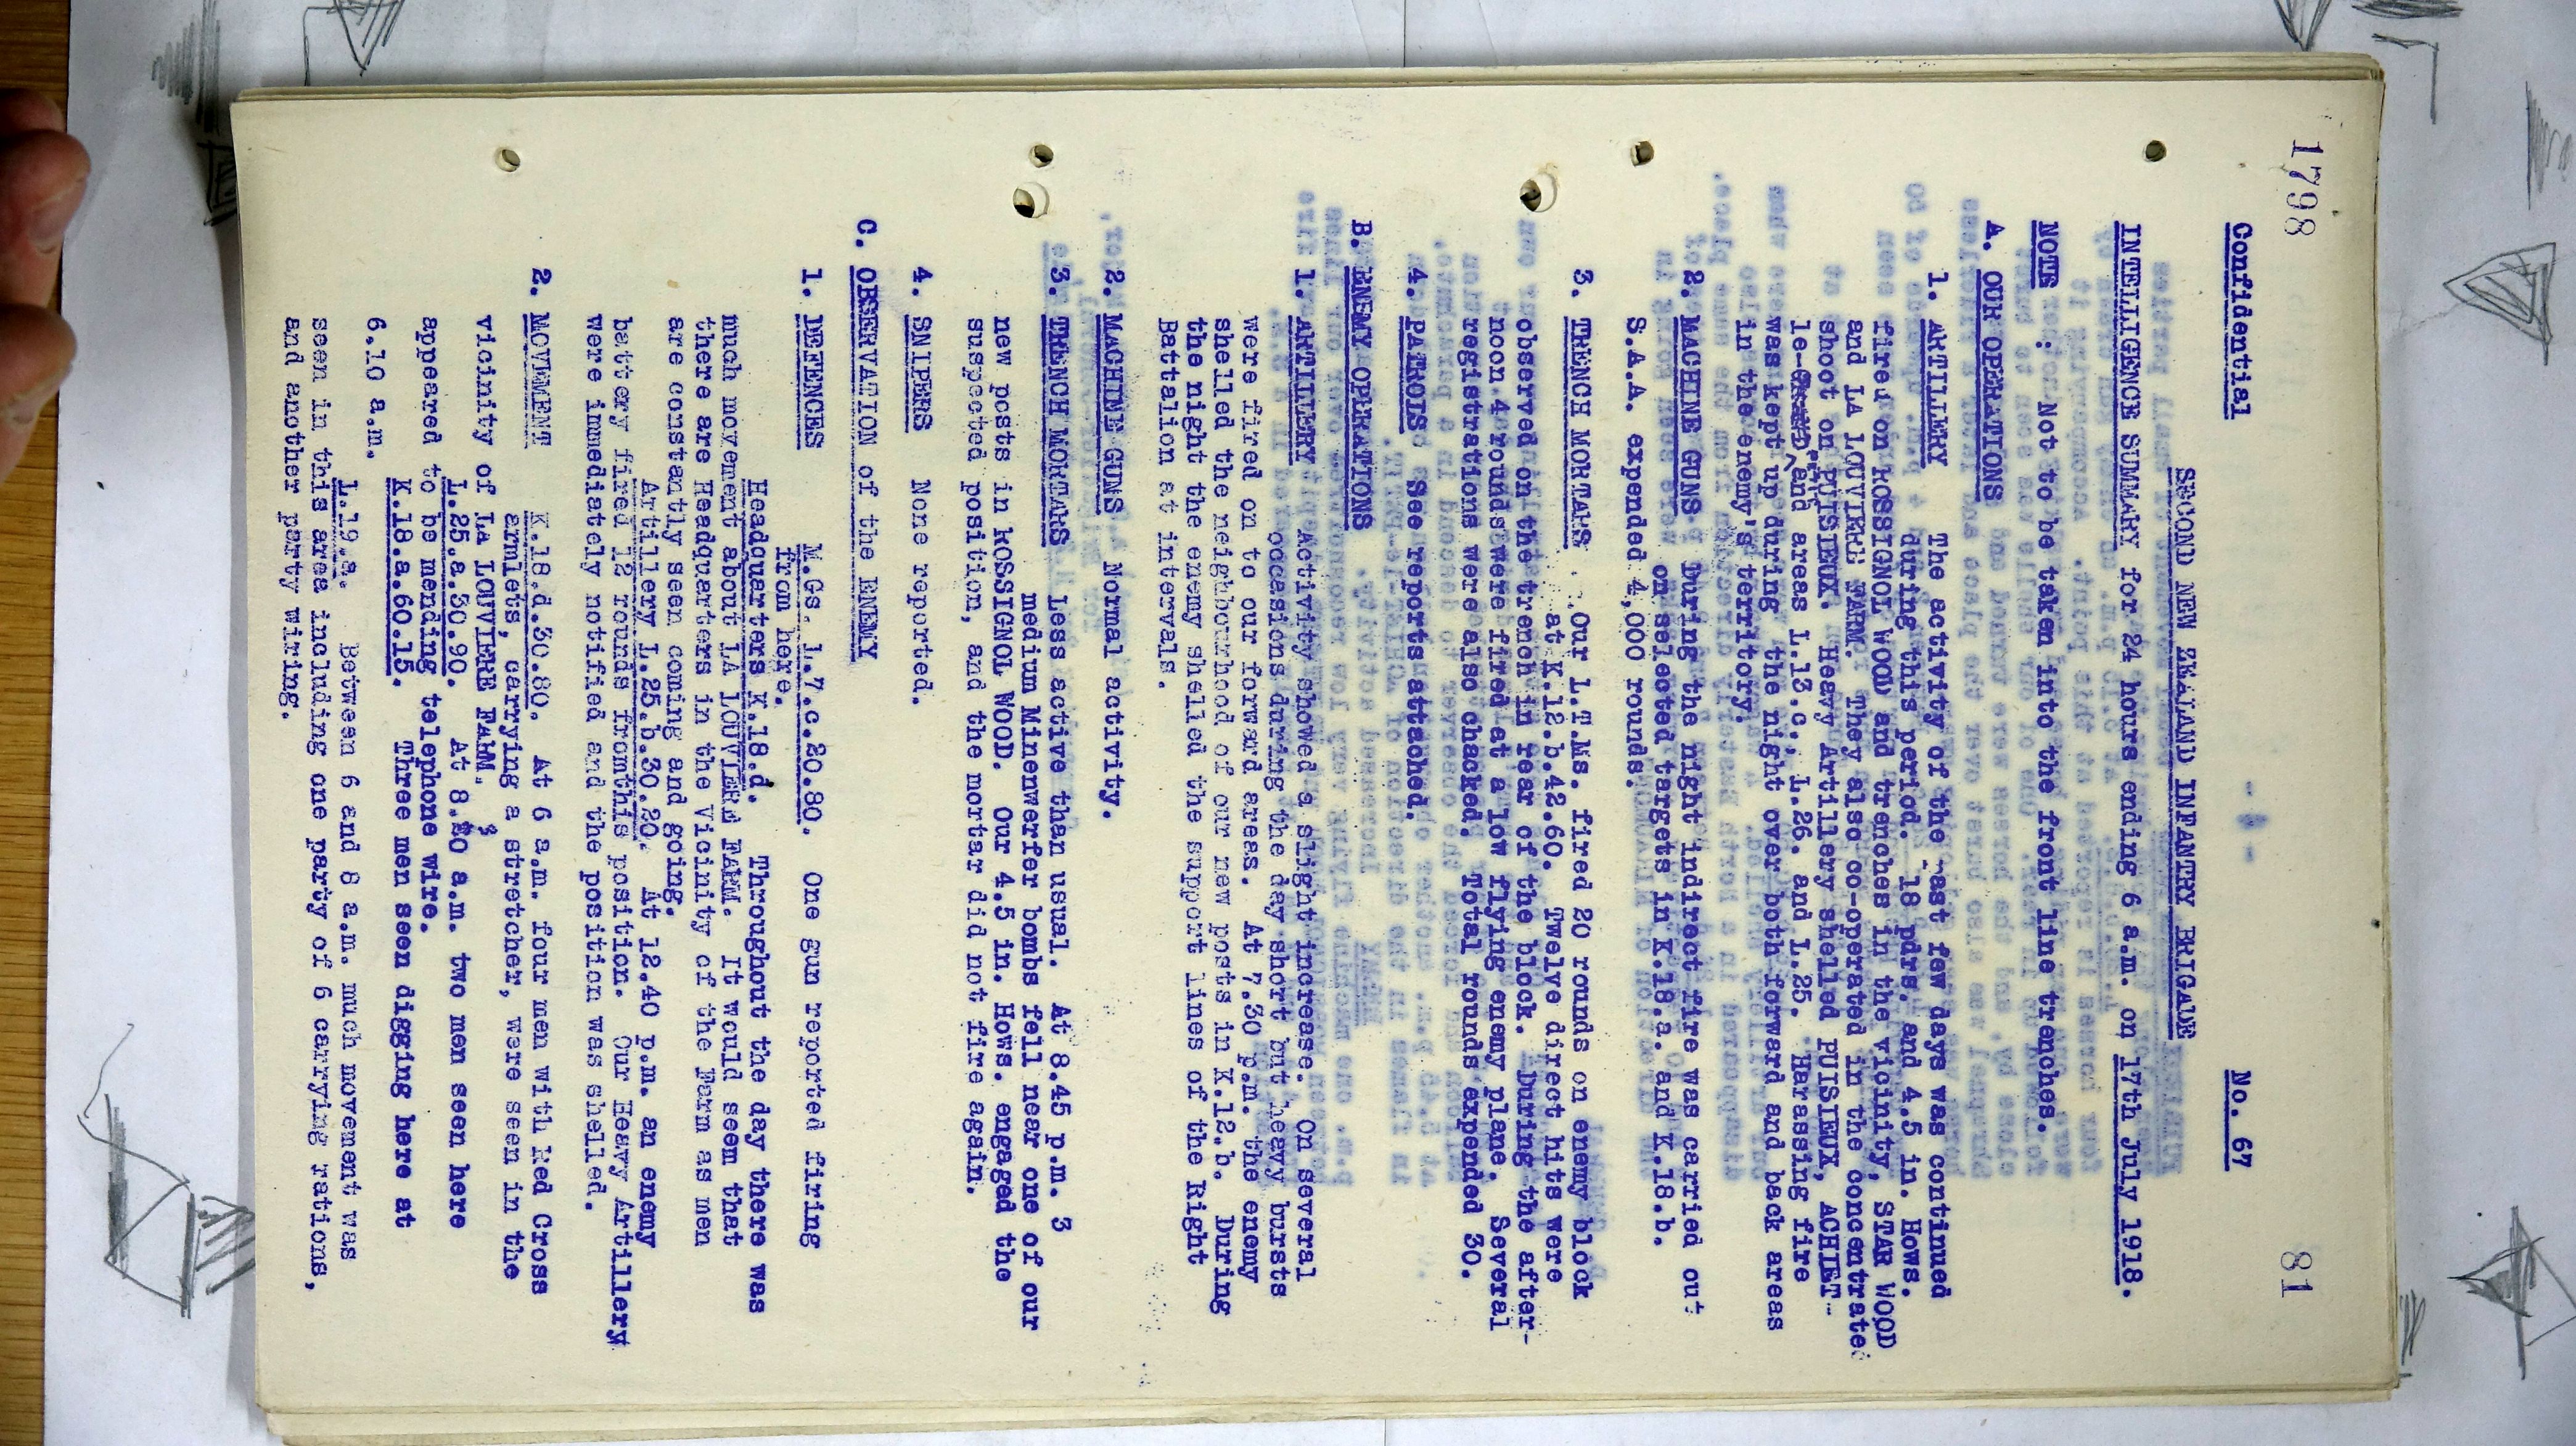 1798
81
Confidential
No. 67
SECOND NEW ZEALAND INFANTRY BRIGADE
INTELLIGENCE SUMMARY for 24 hours ending 6 a.m. on 17th July 1918.
NOTE : Not to be taken into the front line trenches.
A. OUR OPERATIONS
1. ARTILLERY The activity of the past few days was continued
during this period. 18 pdrs. and 4.5 in. Hows.
fired on ROSSIGNOL WOOD and trenches in the vicinity, STAR WOOD
and LA LOUVIERE FARM. They also co-operated in the concentrated
shoot on PUISIEUX. Heavy Artillery shelled PUISIEUX, ACHIET-
le-GRAND PETIT and areas L.13.c., L.26. and L.25. Harassing fire
was kept up during the night over both forward and back areas
in the enemy's territory.
2. MACHINE GUNS During the night indirect fire was carried out
on selected targets in K.18.a. and K.18.b.
S.A.A. expended 4,000 rounds.
3. TRENCH MORTARS Our L.T.Ms. fired 20 rounds on enemy block
at K.12.b.42.60. Twelve direct hits were
observed on the trench in rear of the block. During the after-
noon 4 rounds were fired at a low flying enemy plane. Several
registrations were also chacked. Total rounds expended 30.
4. PATROLS See reports attached.
B. ENEMY OPERATIONS
1. ARTILLERY Activity showed a slight increase. On several
occasions during the day short but heavy bursts
were fired on to our forward areas. At 7.30 p.m. the enemy
shelled the neighbourhood of our new posts in K.12.b. During
the night the enemy shelled the support lines of the Right
Battalion at intervals.
2. MACHINE GUNS Normal activity.
3. TRENCH MORTARS Less active than usual. At 8.45 p.m. 3
medium Minenwerfer bombs fell near one of our
new posts in ROSSIGNOL WOOD. Our 4.5 in. Hows. engaged the
suspected position, and the mortar did not fire again.
4. SNIPERS None reported.
C. OBSERVATION of the ENEMY
1. DEFENCES M.Gs. L.7.c.20.80. One gun reported firing
from here.
Headquarters K.18.d. Throughout the day there was
much movement about LA LOUVIERE FARM. It would seem that
there are Headquarters in the Vicinity of the Farm as men
are constantly seen coming and going.
Artillery L.25.b.30.20. At 12.40 p.m. an enemy
battery fired 12 rounds fromthis position. Our Heavy Artillery
were immediately notified and the position was shelled.
2. MOVEMENT K.18.d.30.80. At 6 a.m. four men with Red Cross
armlets, carrying a stretcher, were seen in the
vicinity of LA LOUVIERE FARM.
L.25.a.30.90. At 8. 0 a.m. two men seen here
appeared to be mending telephone wire.
K.18.a.60.15. Three men seen digging here at
6.10 a.m.
L.19.a. Between 6 and 8 a.m. much movement was
seen in this area including one party of 6 carrying rations,
and another party wiring.